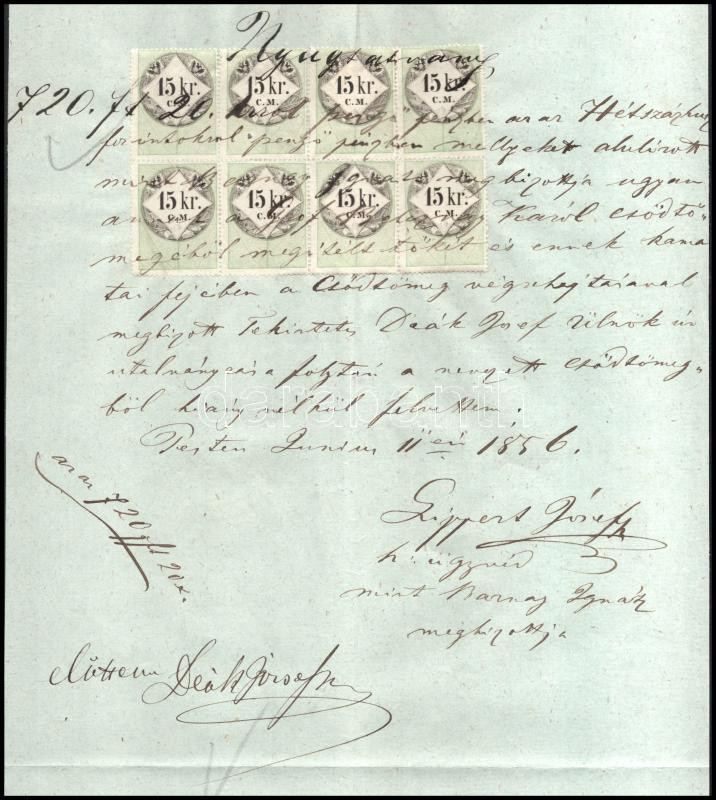 Nyugtatvány
720. ft 20. krrol pengő pénzben az az Hétszázhusz
forintokrol "pengő" pénzben mellyeket alulirott
mint Barnay Ignátz megbizottja ugyan
annak a Károl csődtö-
megéböl megitélt tőkét és ennek kama
tai fejében a Csődtömeg végrehajtásával
megbizott Tekintetes Deák Josef Ülnök úr
utalványozása folytán a nevezett csődtömeg-
ből hiány nélkül felvettem.
Pesten Junius 11én 1856.
az az 720 ft 20 x.
Lippert József
h. ügyvéd
mint Barnay Ignátz
megbizottja
Előttem Deák József
15 kr. C.M. 15 kr. C.M. 15 kr. C.M. 15 kr. C.M.
15 kr. C.M. 15 kr. C.M. 15 kr. C.M. 15 kr. C.M.
darabanth